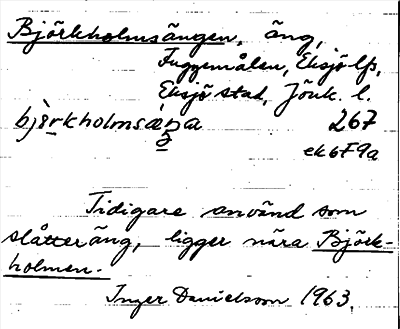 Björkholmsängen, äng,
Fuggemålen, Eksjö lfs,
Eksjö stad, Jönk. l.
bjò̈rkholmsæ̀ŋa 267
ek6F9a
Tidigare använd som
slåtteräng, ligger nära Björk-
holmen.
Inger Danielsson 1963.